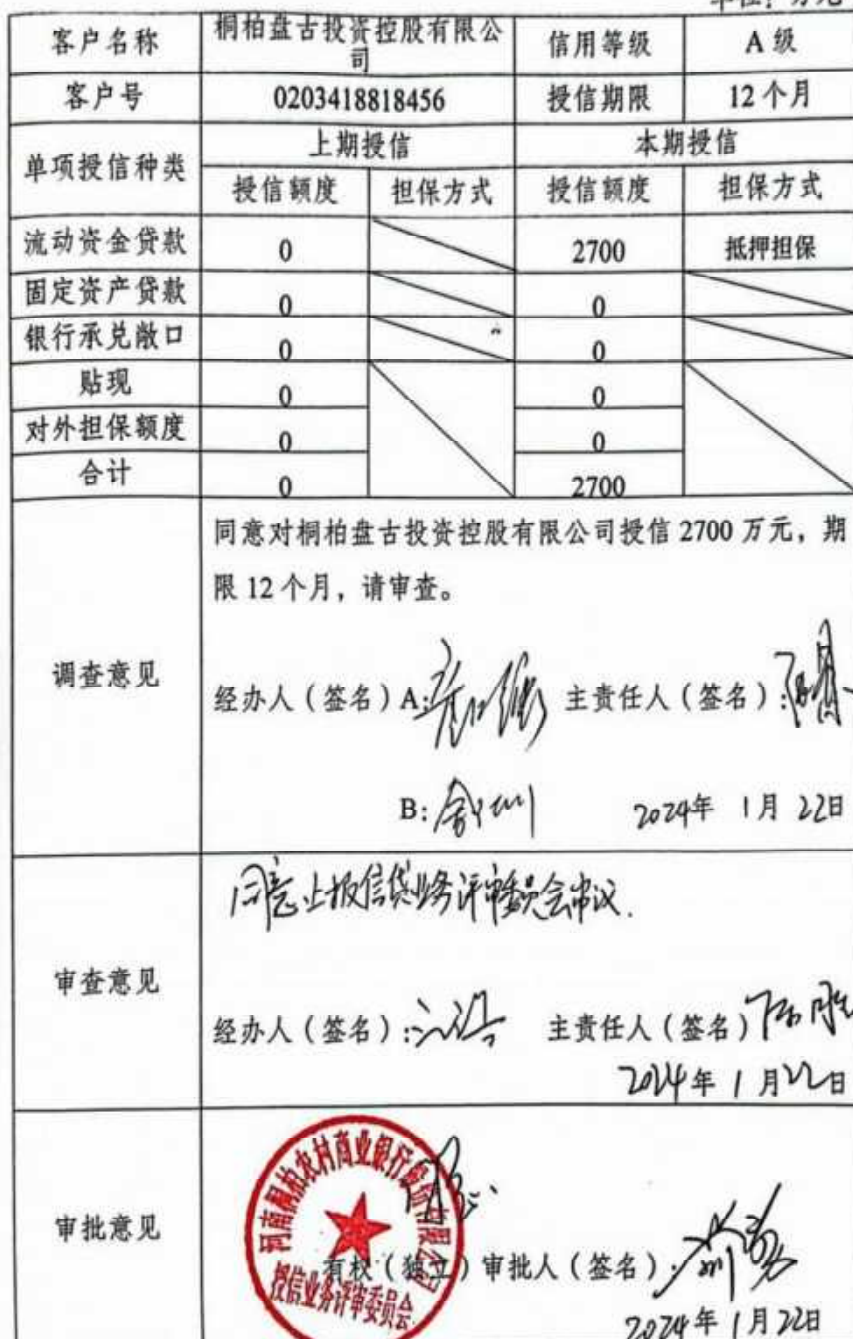 单位：万元
客户名称 桐柏盘古投资控股有限公司 信用等级 A 级
客户号 0203418818456 授信期限 12 个月
单项授信种类 上期授信 本期授信
授信额度 担保方式 授信额度 担保方式
流动资金贷款 0 2700 抵押担保
固定资产贷款 0 0
银行承兑敞口 0 0
贴现 0 0
对外担保额度 0 0
合计 0 2700
调查意见
同意对桐柏盘古投资控股有限公司授信 2700 万元，期
限 12 个月，请审查。
经办人（签名）A: 主责任人（签名）:
B: 2024年 1月 22日
审查意见
同意上报信贷业务评审委员会审议.
经办人（签名）: 主责任人（签名）
2024年 1月22日
审批意见
河南桐柏农村商业银行股份有限公司
授信业务评审委员会
有权（独立）审批人（签名）:
2024年 1月22日